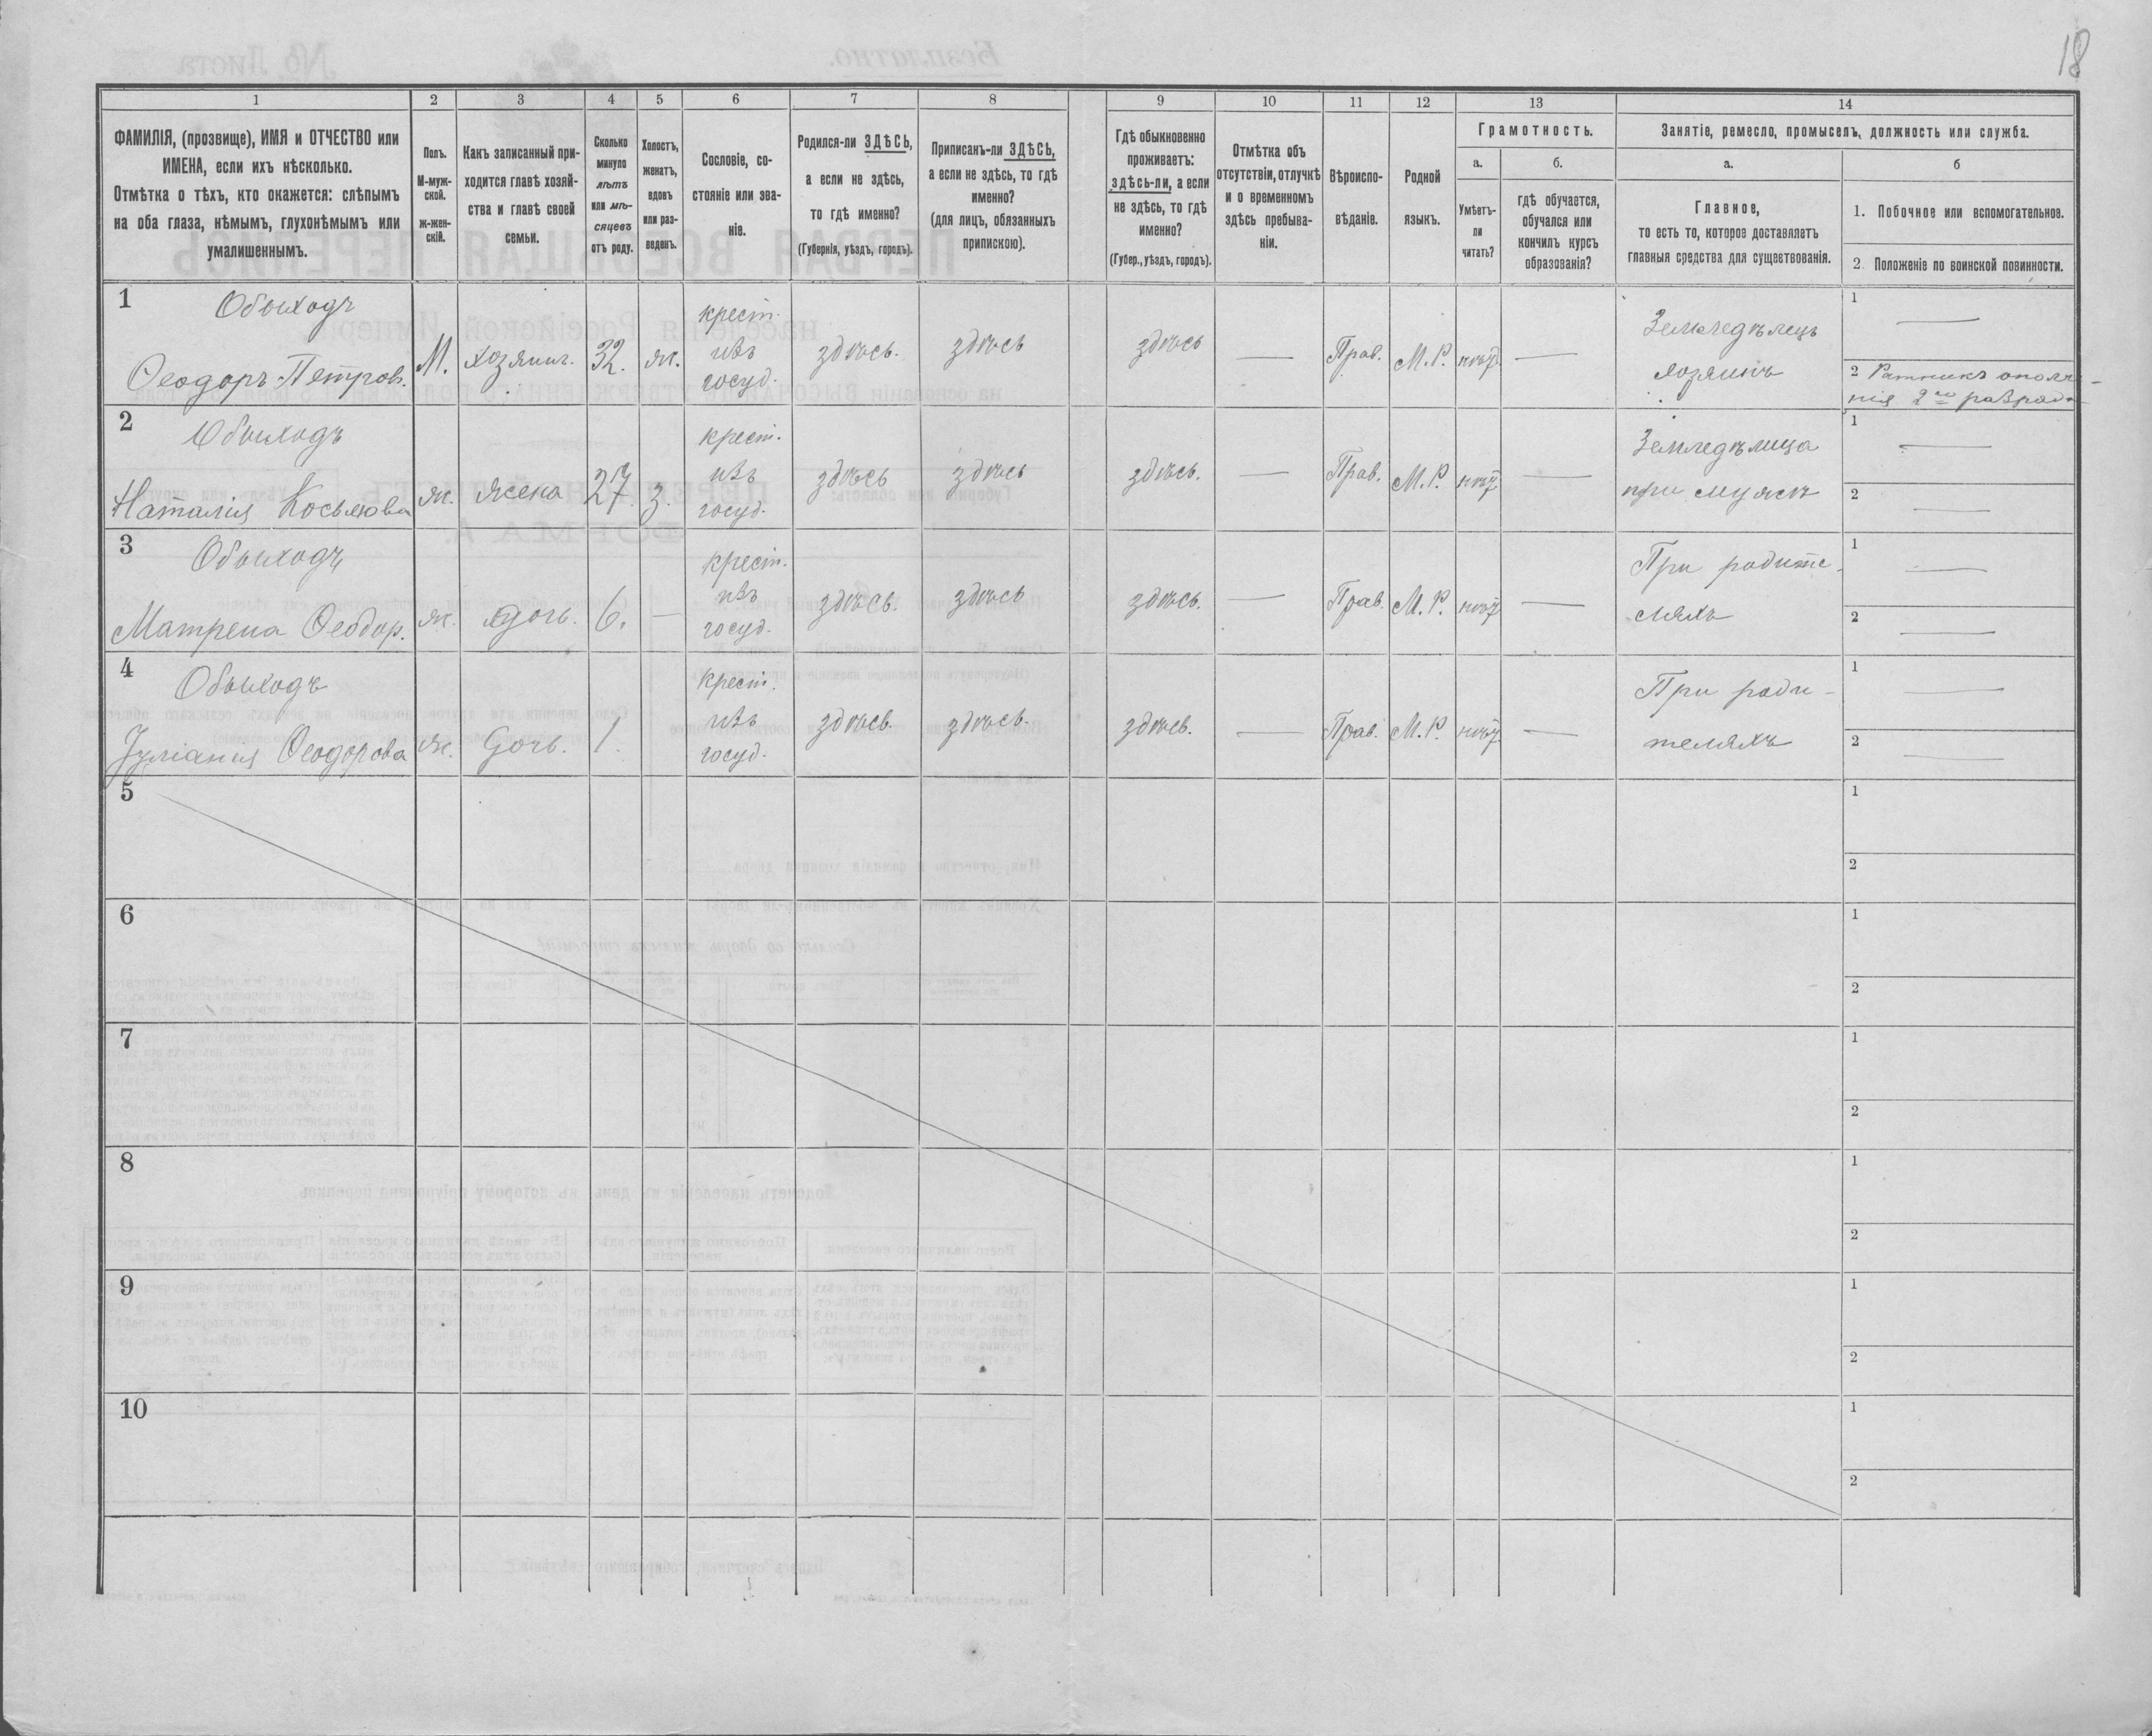 18
1 2 3 4 5 6 7 8 9 10 11 12 13 14
ФАМИЛІЯ, (прозвище), ИМЯ и ОТЧЕСТВО или
ИМЕНА, если ихъ нѣсколько.
Отмѣтка о тѣхъ, кто окажется: слѣпымъ
на оба глаза, нѣмымъ, глухонѣмымъ или
умалишеннымъ.
Полъ.
М-муж-
ской.
ж-жен-
скій.
Какъ записанный при-
ходится главѣ хозяй-
ства и главѣ своей
семьи.
Сколько
минуло
лѣтъ
или мѣ-
сяцевъ
отъ роду.
Холостъ,
женатъ,
вдовъ
или раз-
веденъ.
Сословіе, со-
стояніе или зва-
ніе.
Родился-ли ЗДѢСЬ,
а если не здѣсь,
то гдѣ именно?
(Губернія, уѣздъ, городъ).
Приписанъ-ли ЗДѢСЬ,
а если не здѣсь, то гдѣ
именно?
(для лицъ, обязанныхъ
припискою).
Гдѣ обыкновенно
проживаетъ:
здѣсь-ли, а если
не здѣсь, то гдѣ
именно?
(Губер., уѣздъ, городъ).
Отмѣтка объ
отсутствіи, отлучкѣ
и о временномъ
здѣсь пребыва-
ніи.
Вѣроиспо-
вѣданіе.
Родной
языкъ.
Грамотность.
а.
Умѣетъ-
ли
читать?
б.
гдѣ обучается,
обучался или
кончилъ курсъ
образованія?
Занятіе, ремесло, промыселъ, должность или служба.
а.
Главное,
то есть то, которое доставляетъ
главныя средства для существованія.
б
1. Побочное или вспомогательное.
2. Положеніе по воинской повинности.
1 Обыходъ
Ѳеодоръ Петров.
М. хозяинъ. 32. ж.
крест.
изъ
госуд.
здѣсь. здѣсь здѣсь — Прав. М.Р. нѣт —
Земледѣлецъ
хозяинъ
1 —
2 Ратникъ ополче-
нія 2го разряда
2 Обыходъ
Наталія Косьмова
ж. жена 27. з.
крест.
изъ
госуд.
здѣсь здѣсь здѣсь. — Прав. М.Р. нѣт —
Земледѣлица
при мужѣ
1 —
2 —
3 Обыходъ
Матрена Ѳеодор.
ж. дочь. 6. —
крест.
изъ
госуд.
здѣсь. здѣсь здѣсь. — Прав. М.Р. нѣт —
При родите-
ляхъ
1 —
2 —
4 Обыходъ
Іуліанія Ѳеодорова
ж. дочь. 1.
крест.
изъ
госуд.
здѣсь. здѣсь. здѣсь. — Прав. М.Р. нѣт —
При роди-
теляхъ
1 —
2 —
5
1
2
6
1
2
7
1
2
8
1
2
9
1
2
10
1
2